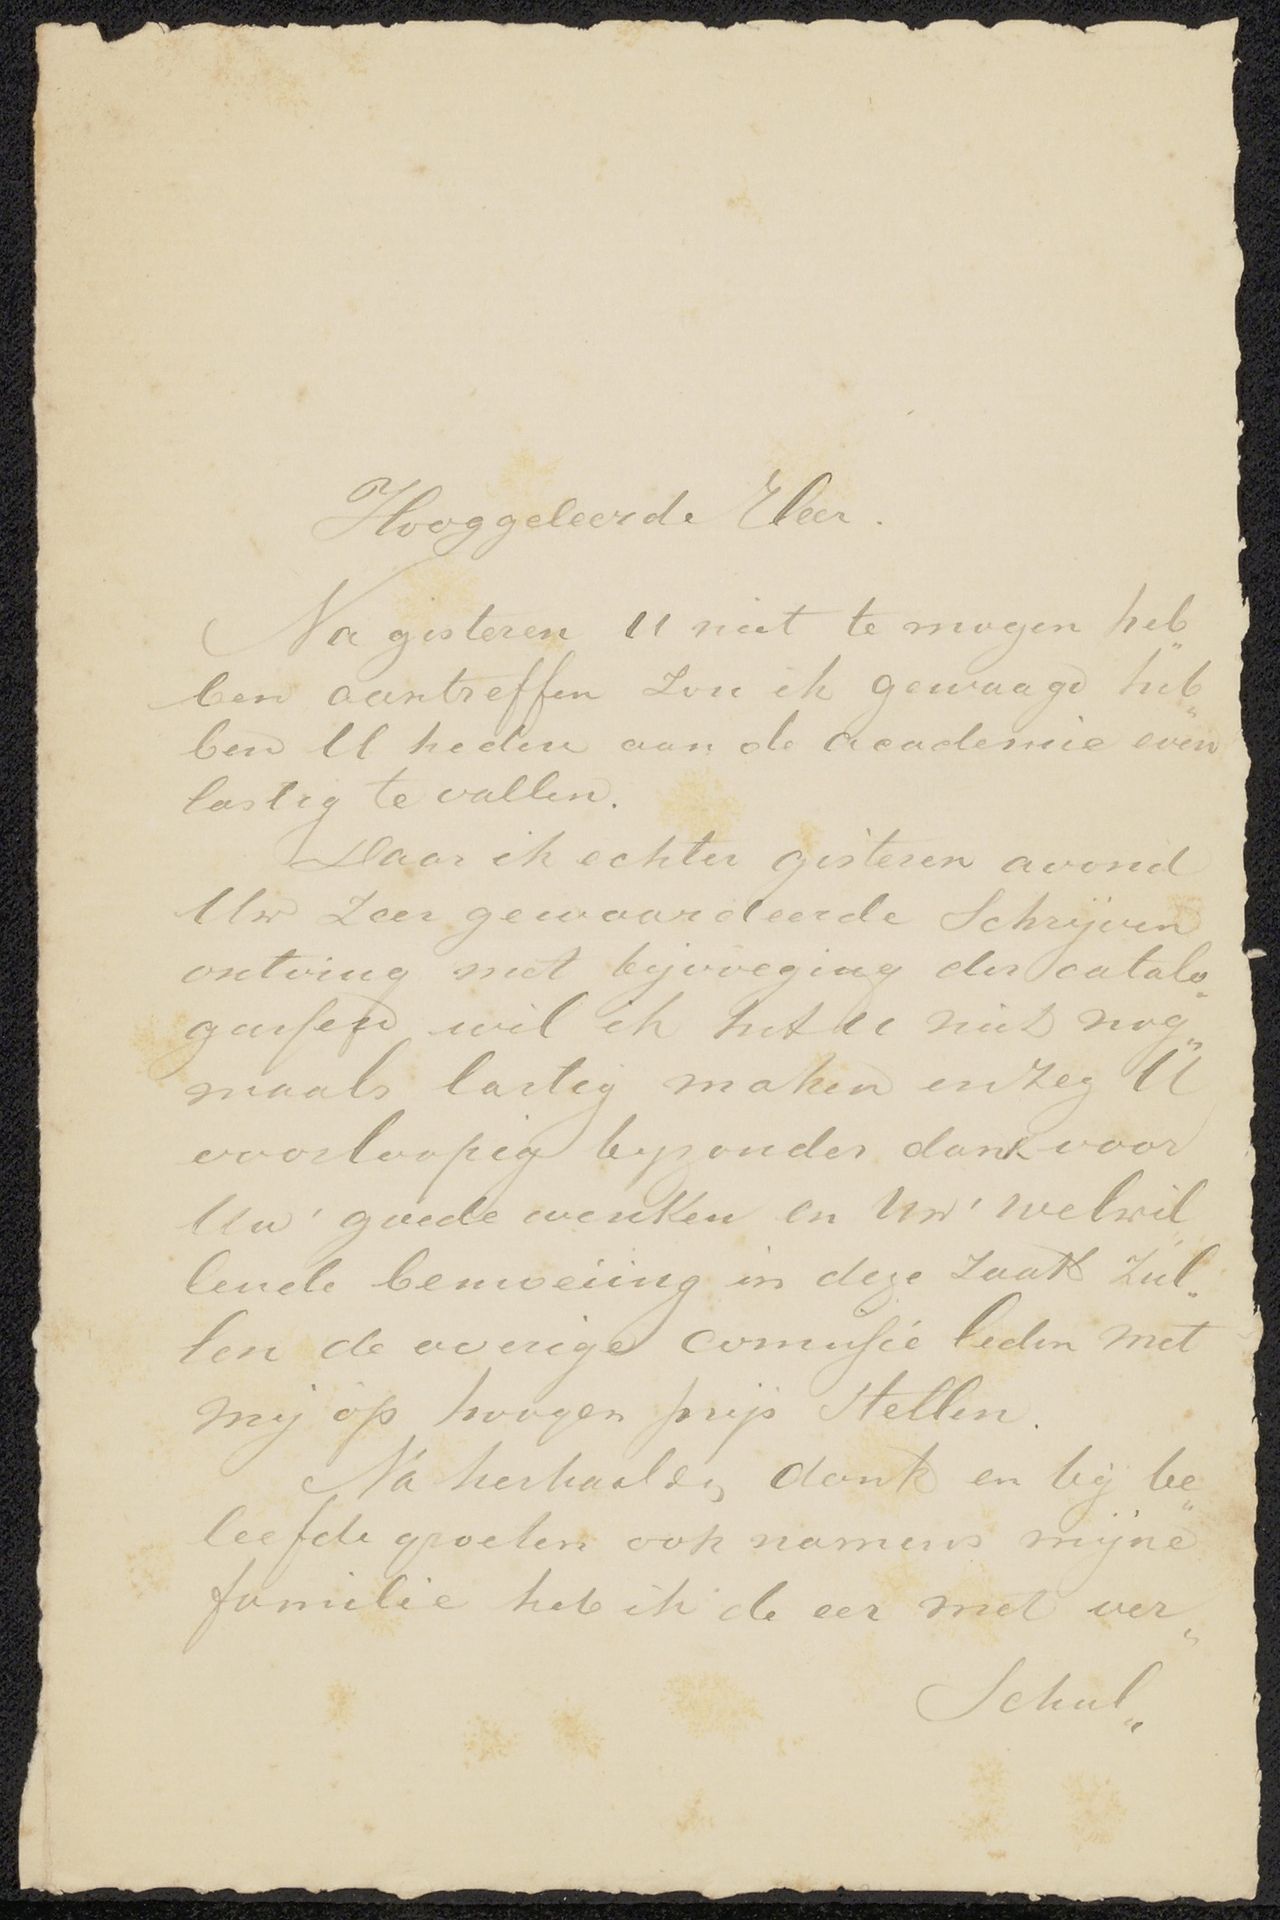 Hooggeleerde Heer.
Na gisteren U niet te mogen heb„
ben aantreffen zou ik gewaagd heb„
ben U heden aan de academie even
lastig te vallen.
Daar ik echter gisteren avond
Uw zeer gewaardeerde Schrijven
ontving met bijvoeging der catalo„
gussen wil ik het U niet nog„
maals lastig maken en zeg U
voorloopig byzonder dank voor
Uw' goede wenken en Uw' welwil„
lende bemoeiing in deze zaak zul„
len de overige comissie leden met
mij op hoogen prijs Stellen.
Na herhaalden dank en bij be„
leefde groeten ook namens mijne
familie heb ik de eer met ver„
Schul„